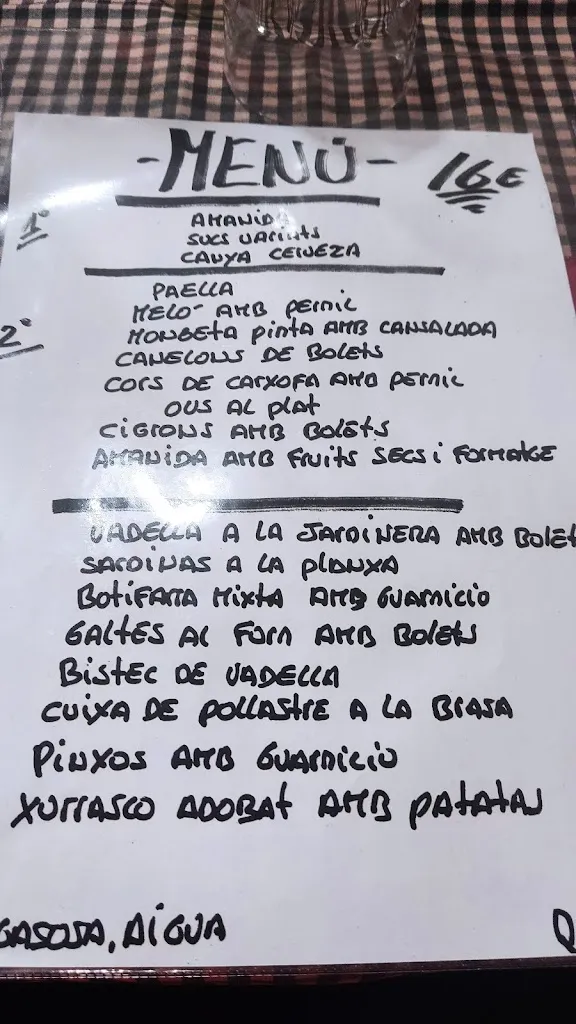 -MENÚ- 16€
1º
AMANIDA
SUCS VARIATS
CANYA CERVEZA
2º
PAELLA
MELÓ AMB PERNIL
MONGETA PINTA AMB CANSALADA
CANELONS DE BOLETS
CORS DE CARXOFA AMB PERNIL
OUS AL PLAT
CIGRONS AMB BOLETS
AMANIDA AMB FRUITS SECS i FORMATGE
VADELLA A LA JARDINERA AMB BOLET
SARDINAS A LA PLANXA
BOTIFARRA MIXTA AMB GUARNICIO
GALTES AL FORN AMB BOLETS
BISTEC DE VADELLA
CUIXA DE POLLASTRE A LA BRASA
PINXOS AMB GUARNICIO
XURRASCO ADOBAT AMB PATATAS
GASOSA, AIGUA